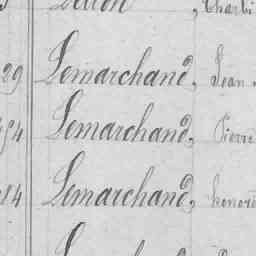 29 Lemarchand, Jean
Lemarchand, Pierre
14 Lemarchand, honoré